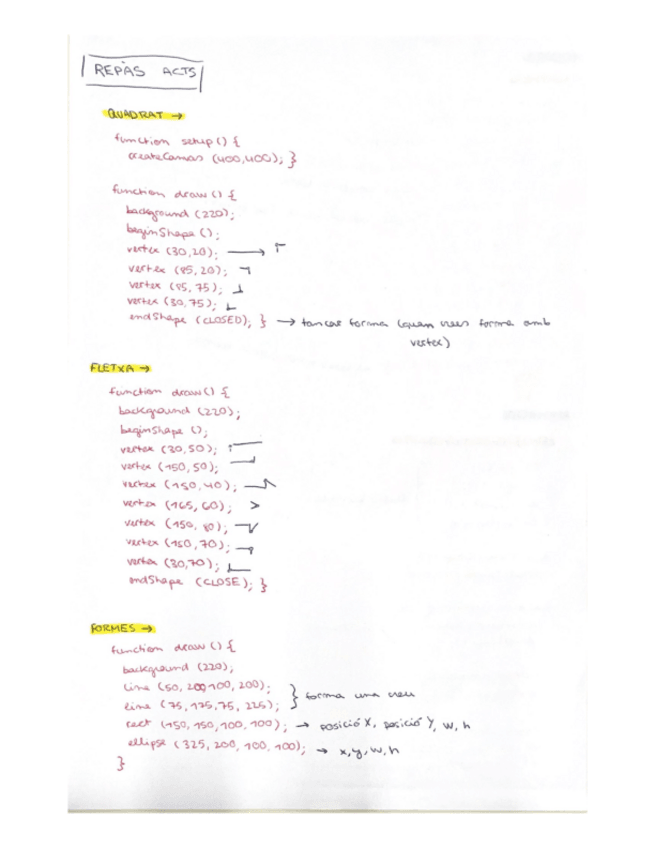 REPÀS ACTS
QUADRAT →
function setup() {
createCanvas (400,400); }
function draw () {
background (220);
beginShape ();
vertex (30,20); →
vertex (85,20);
vertex (85,75);
vertex (30,75);
endShape (CLOSED); } → tancar forma (quan crees forma amb
vertex)
FLETXA →
function draw() {
background (220);
beginShape ();
vertex (30,50);
vertex (150,50);
vertex (150,40);
vertex (165,60);
vertex (150,80);
vertex (150,70);
vertex (30,70);
endShape (CLOSE); }
FORMES →
function draw () {
background (220);
line (50, 200,100, 200);
line (75,175,75, 225); } forma una creu
rect (150,150,100,100); → posició X, posició Y, w, h
ellipse (325, 200, 100, 100); → x,y,w,h
}